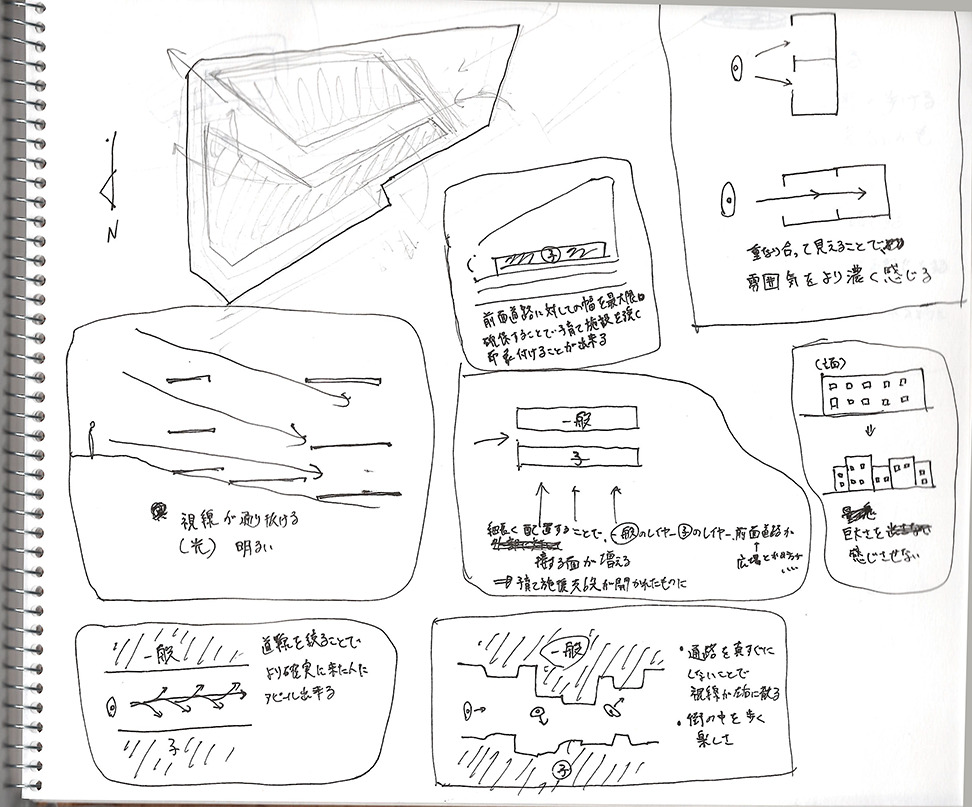 N
重なり合って見えることで
雰囲気をより濃く感じる
子
前面道路に対しての幅を最大限
確保することで子育て施設を強く
印象付けることが出来る
視線が通り抜ける
(光) 明るい
一般
子
細長く配置することで、一般のレイヤー 子のレイヤー、前面道路が
接する面が増える
広場と
⇒子育て施設 が開かれたものに
(立面)
巨大さを
感じさせない
一般
子
道幅を絞ることで
より確実に来た人に
アピール出来る
一般
子
・通路を真すぐに
しないことで
視線が左右に散る
・街の中を歩く
楽しさ